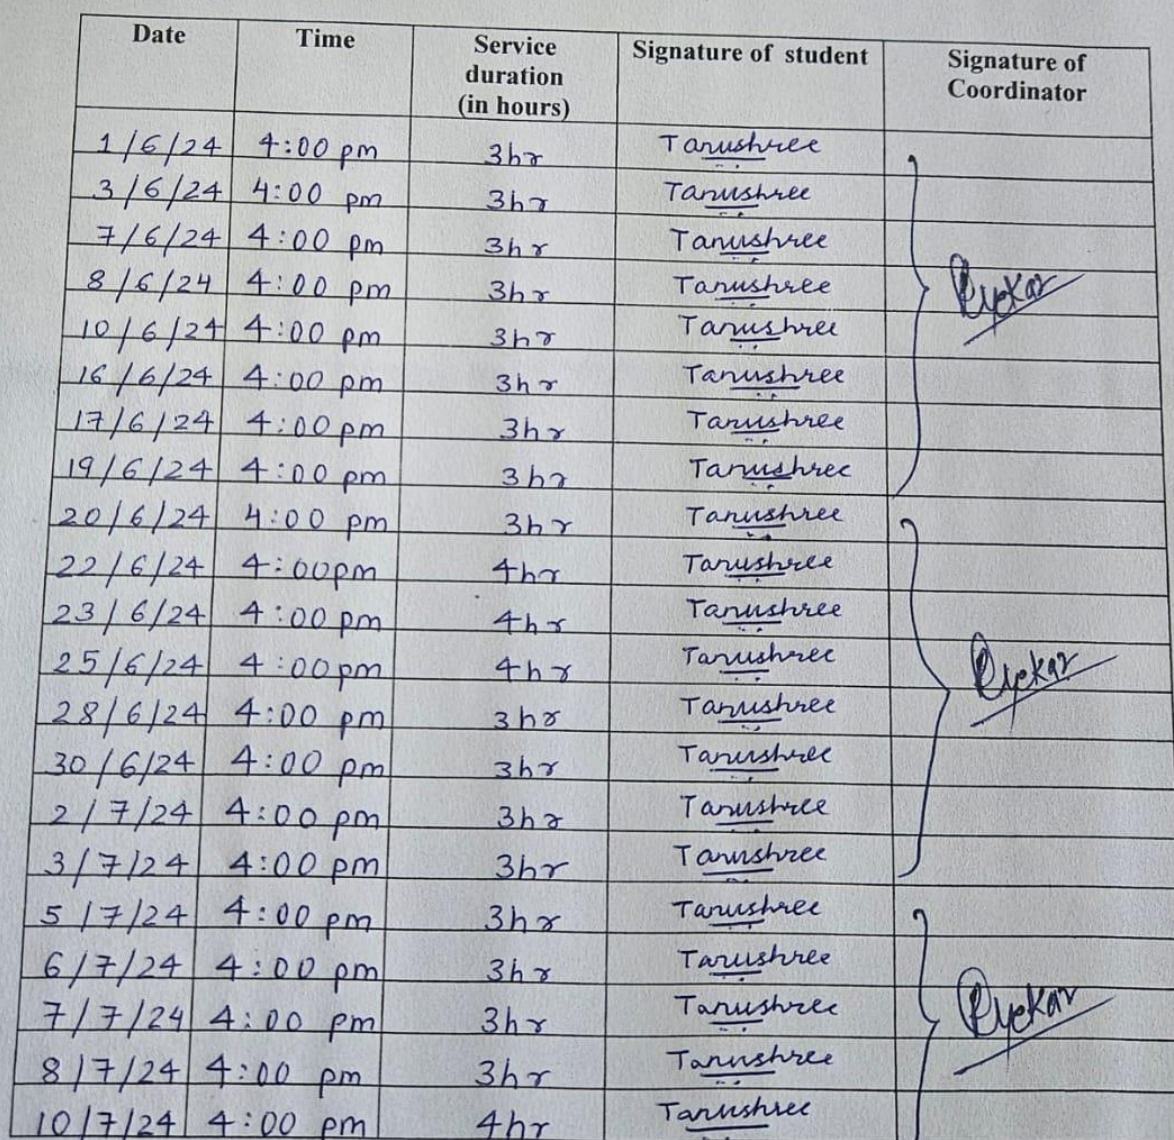 Date Time Service duration (in hours) Signature of student Signature of Coordinator
1/6/24 4:00 pm 3hr Tanushree
3/6/24 4:00 pm 3hr Tanushree
7/6/24 4:00 pm 3hr Tanushree
8/6/24 4:00 pm 3hr Tanushree
10/6/24 4:00 pm 3hr Tanushree
16/6/24 4:00 pm 3hr Tanushree
17/6/24 4:00 pm 3hr Tanushree
19/6/24 4:00 pm 3hr Tanushree
20/6/24 4:00 pm 3hr Tanushree
22/6/24 4:00pm 4hr Tanushree
23/6/24 4:00 pm 4hr Tanushree
25/6/24 4:00pm 4hr Tanushree
28/6/24 4:00 pm 3hr Tanushree
30/6/24 4:00 pm 3hr Tanushree
2/7/24 4:00 pm 3hr Tanushree
3/7/24 4:00 pm 3hr Tanushree
5/7/24 4:00 pm 3hr Tanushree
6/7/24 4:00 pm 3hr Tanushree
7/7/24 4:00 pm 3hr Tanushree
8/7/24 4:00 pm 3hr Tanushree
10/7/24 4:00 pm 4hr Tanushree